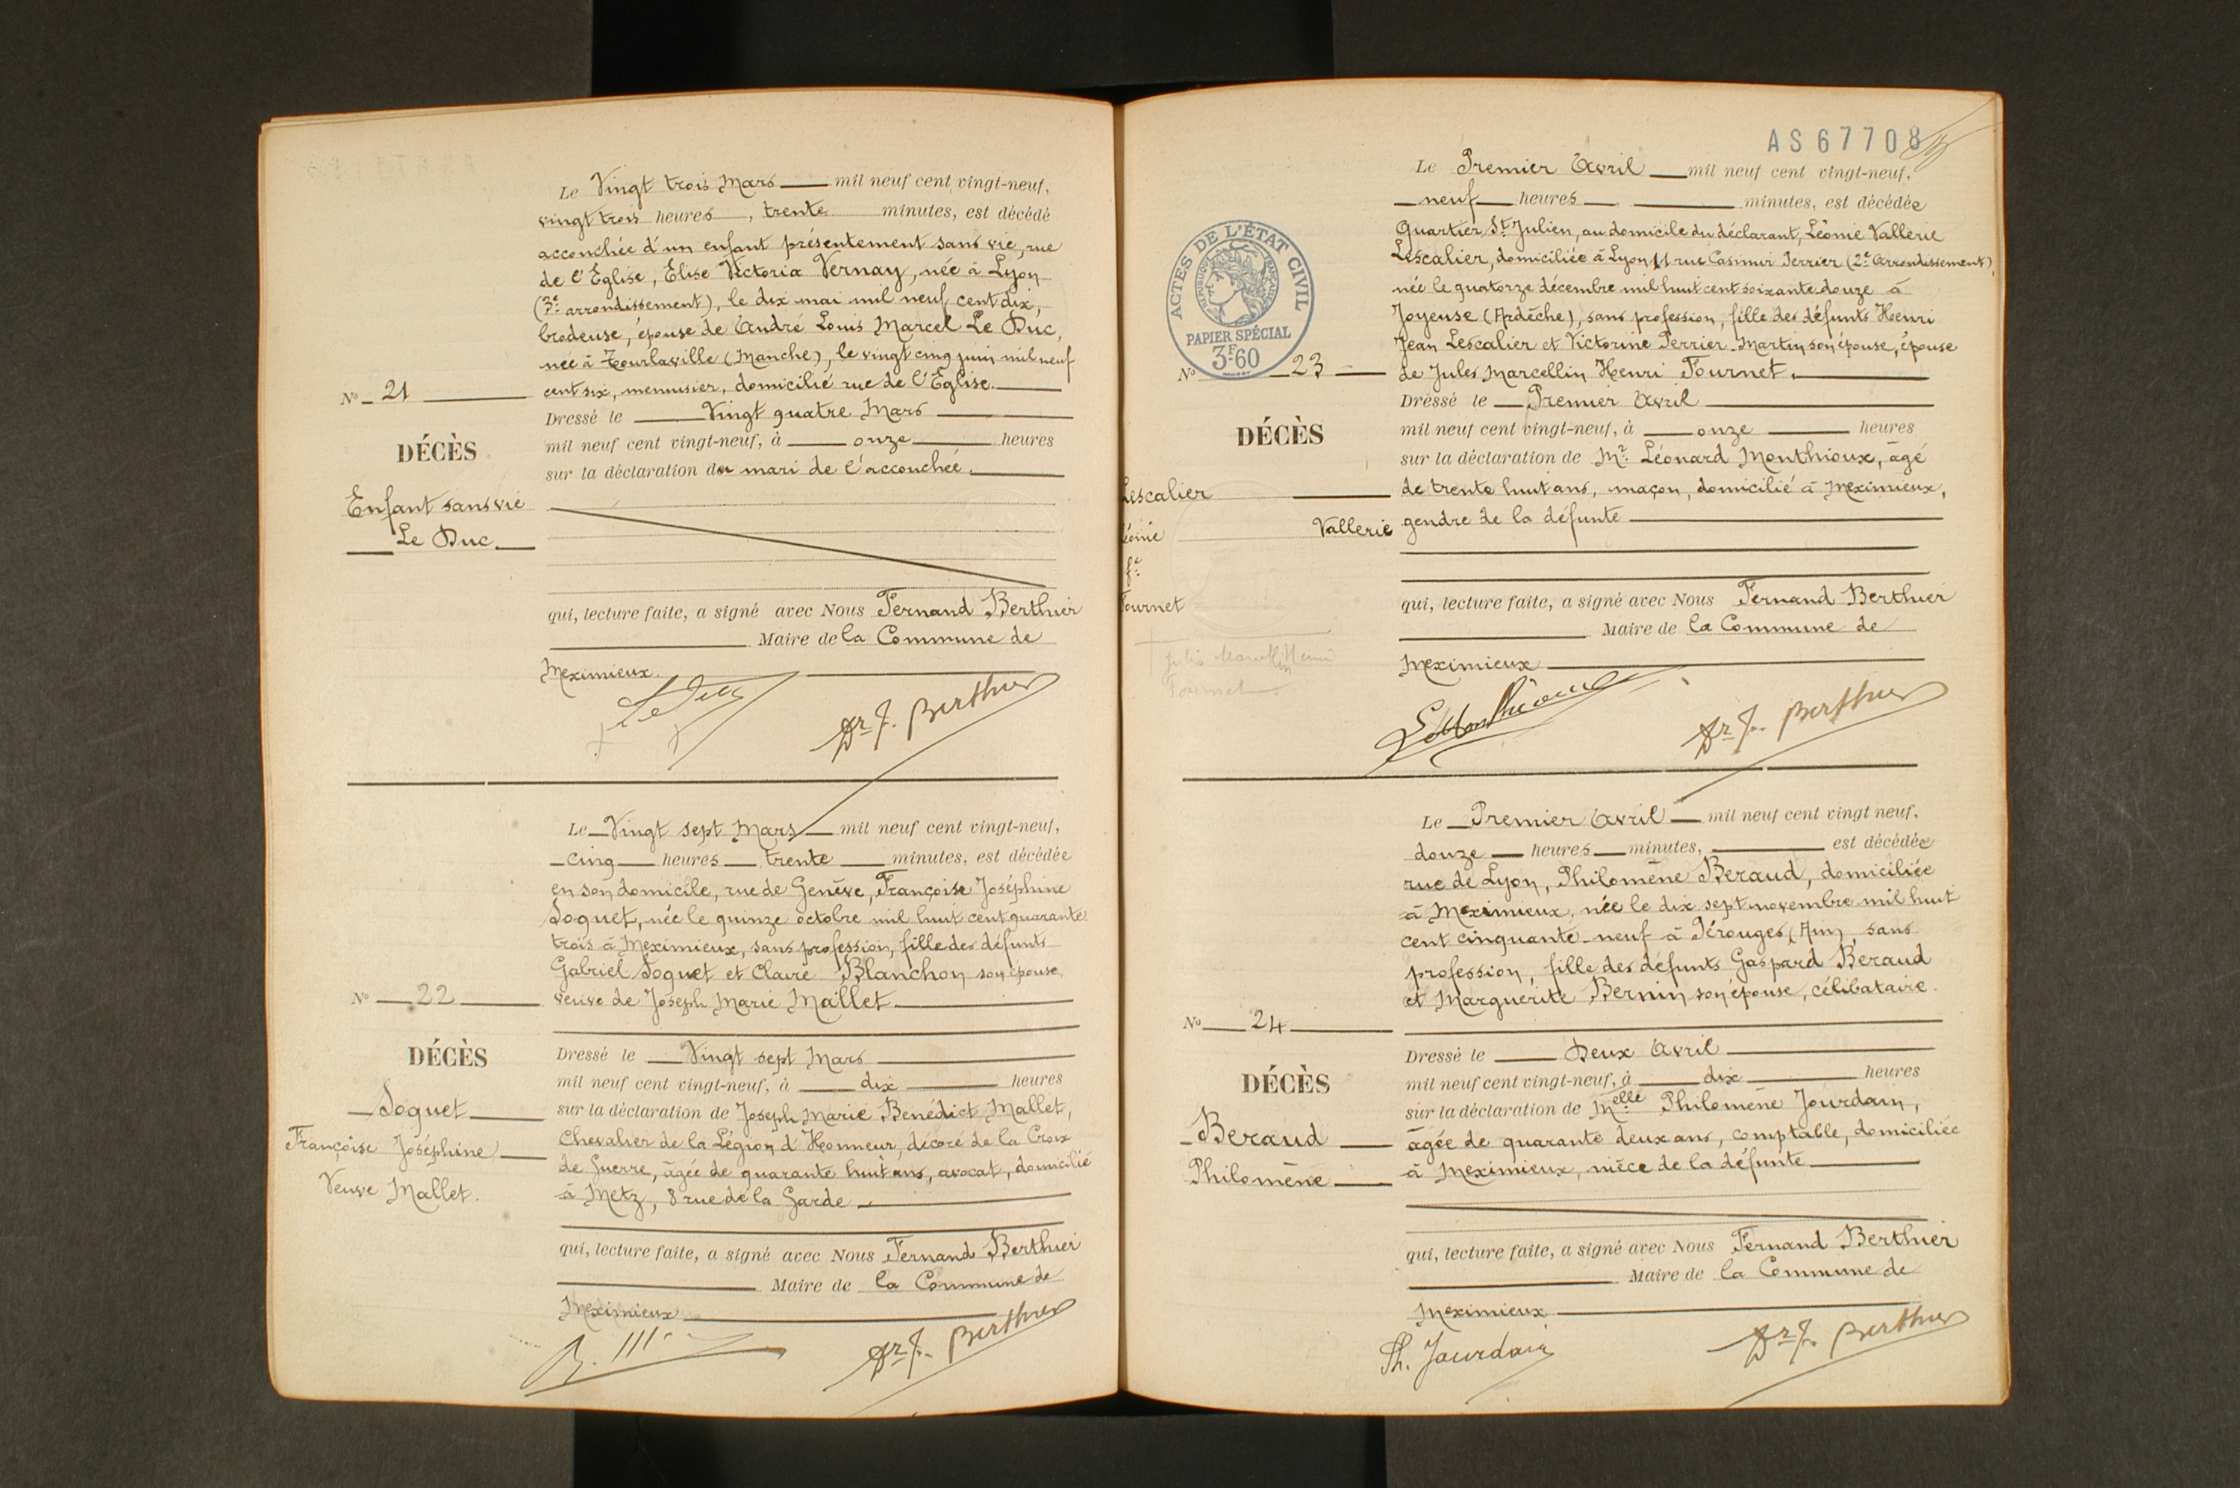 Le Vingt trois Mars mil neuf cent vingt-neuf,
vingt trois heures, trente minutes, est décédé
accouchée d'un enfant présentement sans vie, rue
de l'Église, Elise Victoria Vernay, née à Lyon
(3e arrondissement), le dix mai mil neuf cent dix,
brodeuse, épouse de André Louis Marcel Le Duc,
née à Tourlaville (Manche), le vingt cinq juin mil neuf
cent six, menuisier, domicilié rue de l'Église.
No 21
Dressé le Vingt quatre Mars
mil neuf cent vingt-neuf, à onze heures
DÉCÈS
sur la déclaration du mari de l'accouchée.
Enfant sans vie
Le Duc
qui, lecture faite, a signé avec Nous Fernand Berthier
Maire de la Commune de
Meximieux
Dr F. Berthier
Le Vingt sept Mars mil neuf cent vingt-neuf,
cinq heures trente minutes, est décédée
en son domicile, rue de Genève, Françoise Joséphine
Soquet, née le quinze octobre mil huit cent quarante
trois à Meximieux, sans profession, fille des défunts
Gabriel Soquet et Claire Blanchon son épouse,
No 22
veuve de Joseph Marie Mallet
DÉCÈS
Dressé le Vingt sept Mars
mil neuf cent vingt-neuf, à dix heures
Soquet
sur la déclaration de Joseph Marie Benédict Mallet,
Françoise Joséphine
Chevalier de la Légion d'Honneur, décoré de la Croix
de Guerre, âgée de quarante huit ans, avocat, domicilié
Veuve Mallet.
à Metz, 8 rue de la Garde
qui, lecture faite, a signé avec Nous Fernand Berthier
Maire de la Commune de
Meximieux
Dr F. Berthier
AS 67708
Le Premier Avril mil neuf cent vingt-neuf,
neuf heures minutes, est décédée
Quartier St Julien, au domicile du déclarant, Léonie Vallerie
Lescalier, domiciliée à Lyon 11 rue Casimir Perrier (2e Arrondissement),
née le quatorze décembre mil huit cent soixante douze à
Joyeuse (Ardèche), sans profession, fille des défunts Henri
Jean Lescalier et Victorine Perrier-Martin son épouse, épouse
de Jules Marcellin Henri Fournet.
ACTES DE L'ÉTAT CIVIL
PAPIER SPÉCIAL
3F60
No 23
Dressé le Premier Avril
mil neuf cent vingt-neuf, à onze heures
DÉCÈS
sur la déclaration de Mr Léonard Monthioux, âgé
de trente huit ans, maçon, domicilié à Meximieux,
Lescalier
gendre de la défunte
Léonie Vallerie
fe
Fournet
Jules Marcellin Henri
Fournet
qui, lecture faite, a signé avec Nous Fernand Berthier
Maire de la Commune de
Meximieux
L. Monthioux
Dr F. Berthier
Le Premier Avril mil neuf cent vingt neuf,
douze heures minutes, est décédée
rue de Lyon, Philomène Beraud, domiciliée
à Meximieux, née le dix sept novembre mil huit
cent cinquante-neuf à Pérouges (Ain), sans
profession, fille des défunts Gaspard Beraud
et Marguerite Bernin son épouse, célibataire.
No 24
Dressé le Deux Avril
DÉCÈS
mil neuf cent vingt-neuf, à dix heures
sur la déclaration de Melle Philomène Jourdain,
Beraud
âgée de quarante deux ans, comptable, domiciliée
Philomène
à Meximieux, nièce de la défunte
qui, lecture faite, a signé avec Nous Fernand Berthier
Maire de la Commune de
Meximieux
Ph. Jourdain
Dr F. Berthier